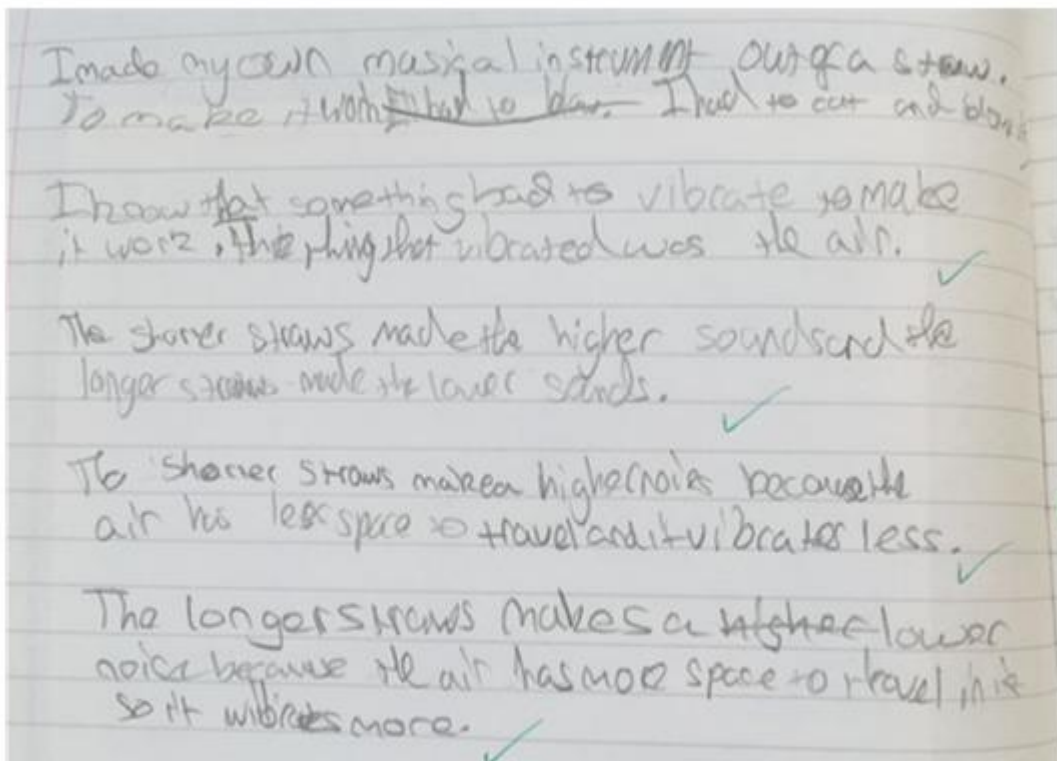 I made my own musical instrument out of a straw.
To make it work I had to blow. I had to cut and blow it
I know that something had to vibrate to make
it work, the thing that vibrated was the air.
The shorter straws made the higher sounds and the
longer straws made the lower sounds.
The shorter straws make a higher noies because the
air has less space to travel and it vibrates less.
The longer straws makes a higher lower
noise because the air has more space to travel in it
so it wibrates more.